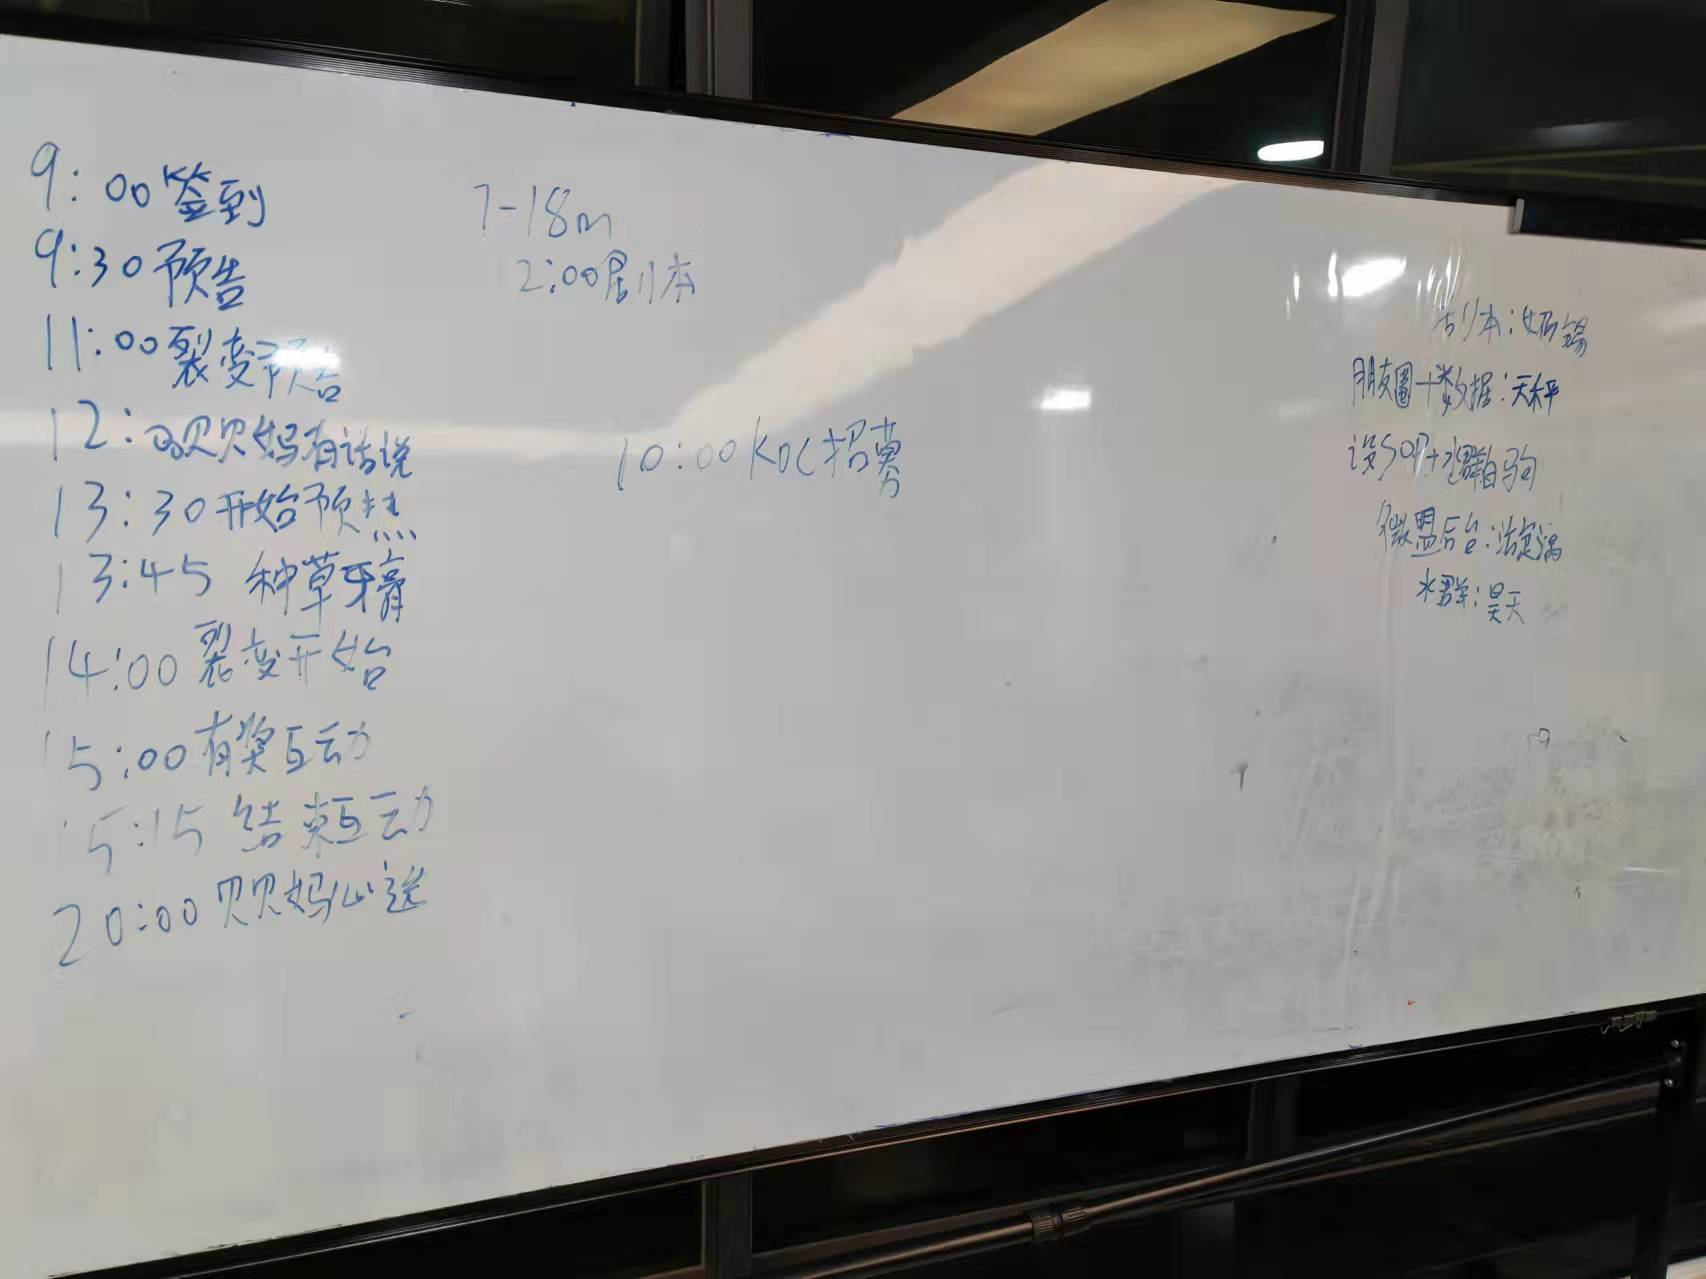 9:00签到
9:30预告
11:00裂变预告
12:00贝贝妈有话说
13:30开始预热
13:45 种草牙膏
14:00裂变开始
15:00有奖互动
15:15 结束互动
20:00贝贝妈心送
7-18m
2:00剧本
10:00KOC招募
剧本:
朋友圈+数据:天秤
设SOP+水群:白驹
微盟后台:
水群:昊天